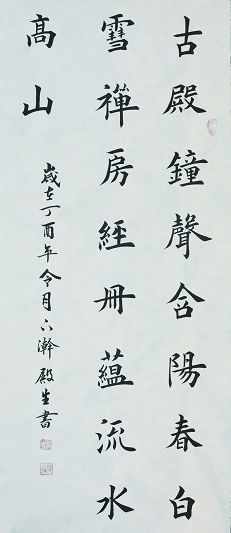 古殿鐘聲含陽春白
雪禪房經冊藴流水
髙山
歲在丁酉年令月下瀚殿生書